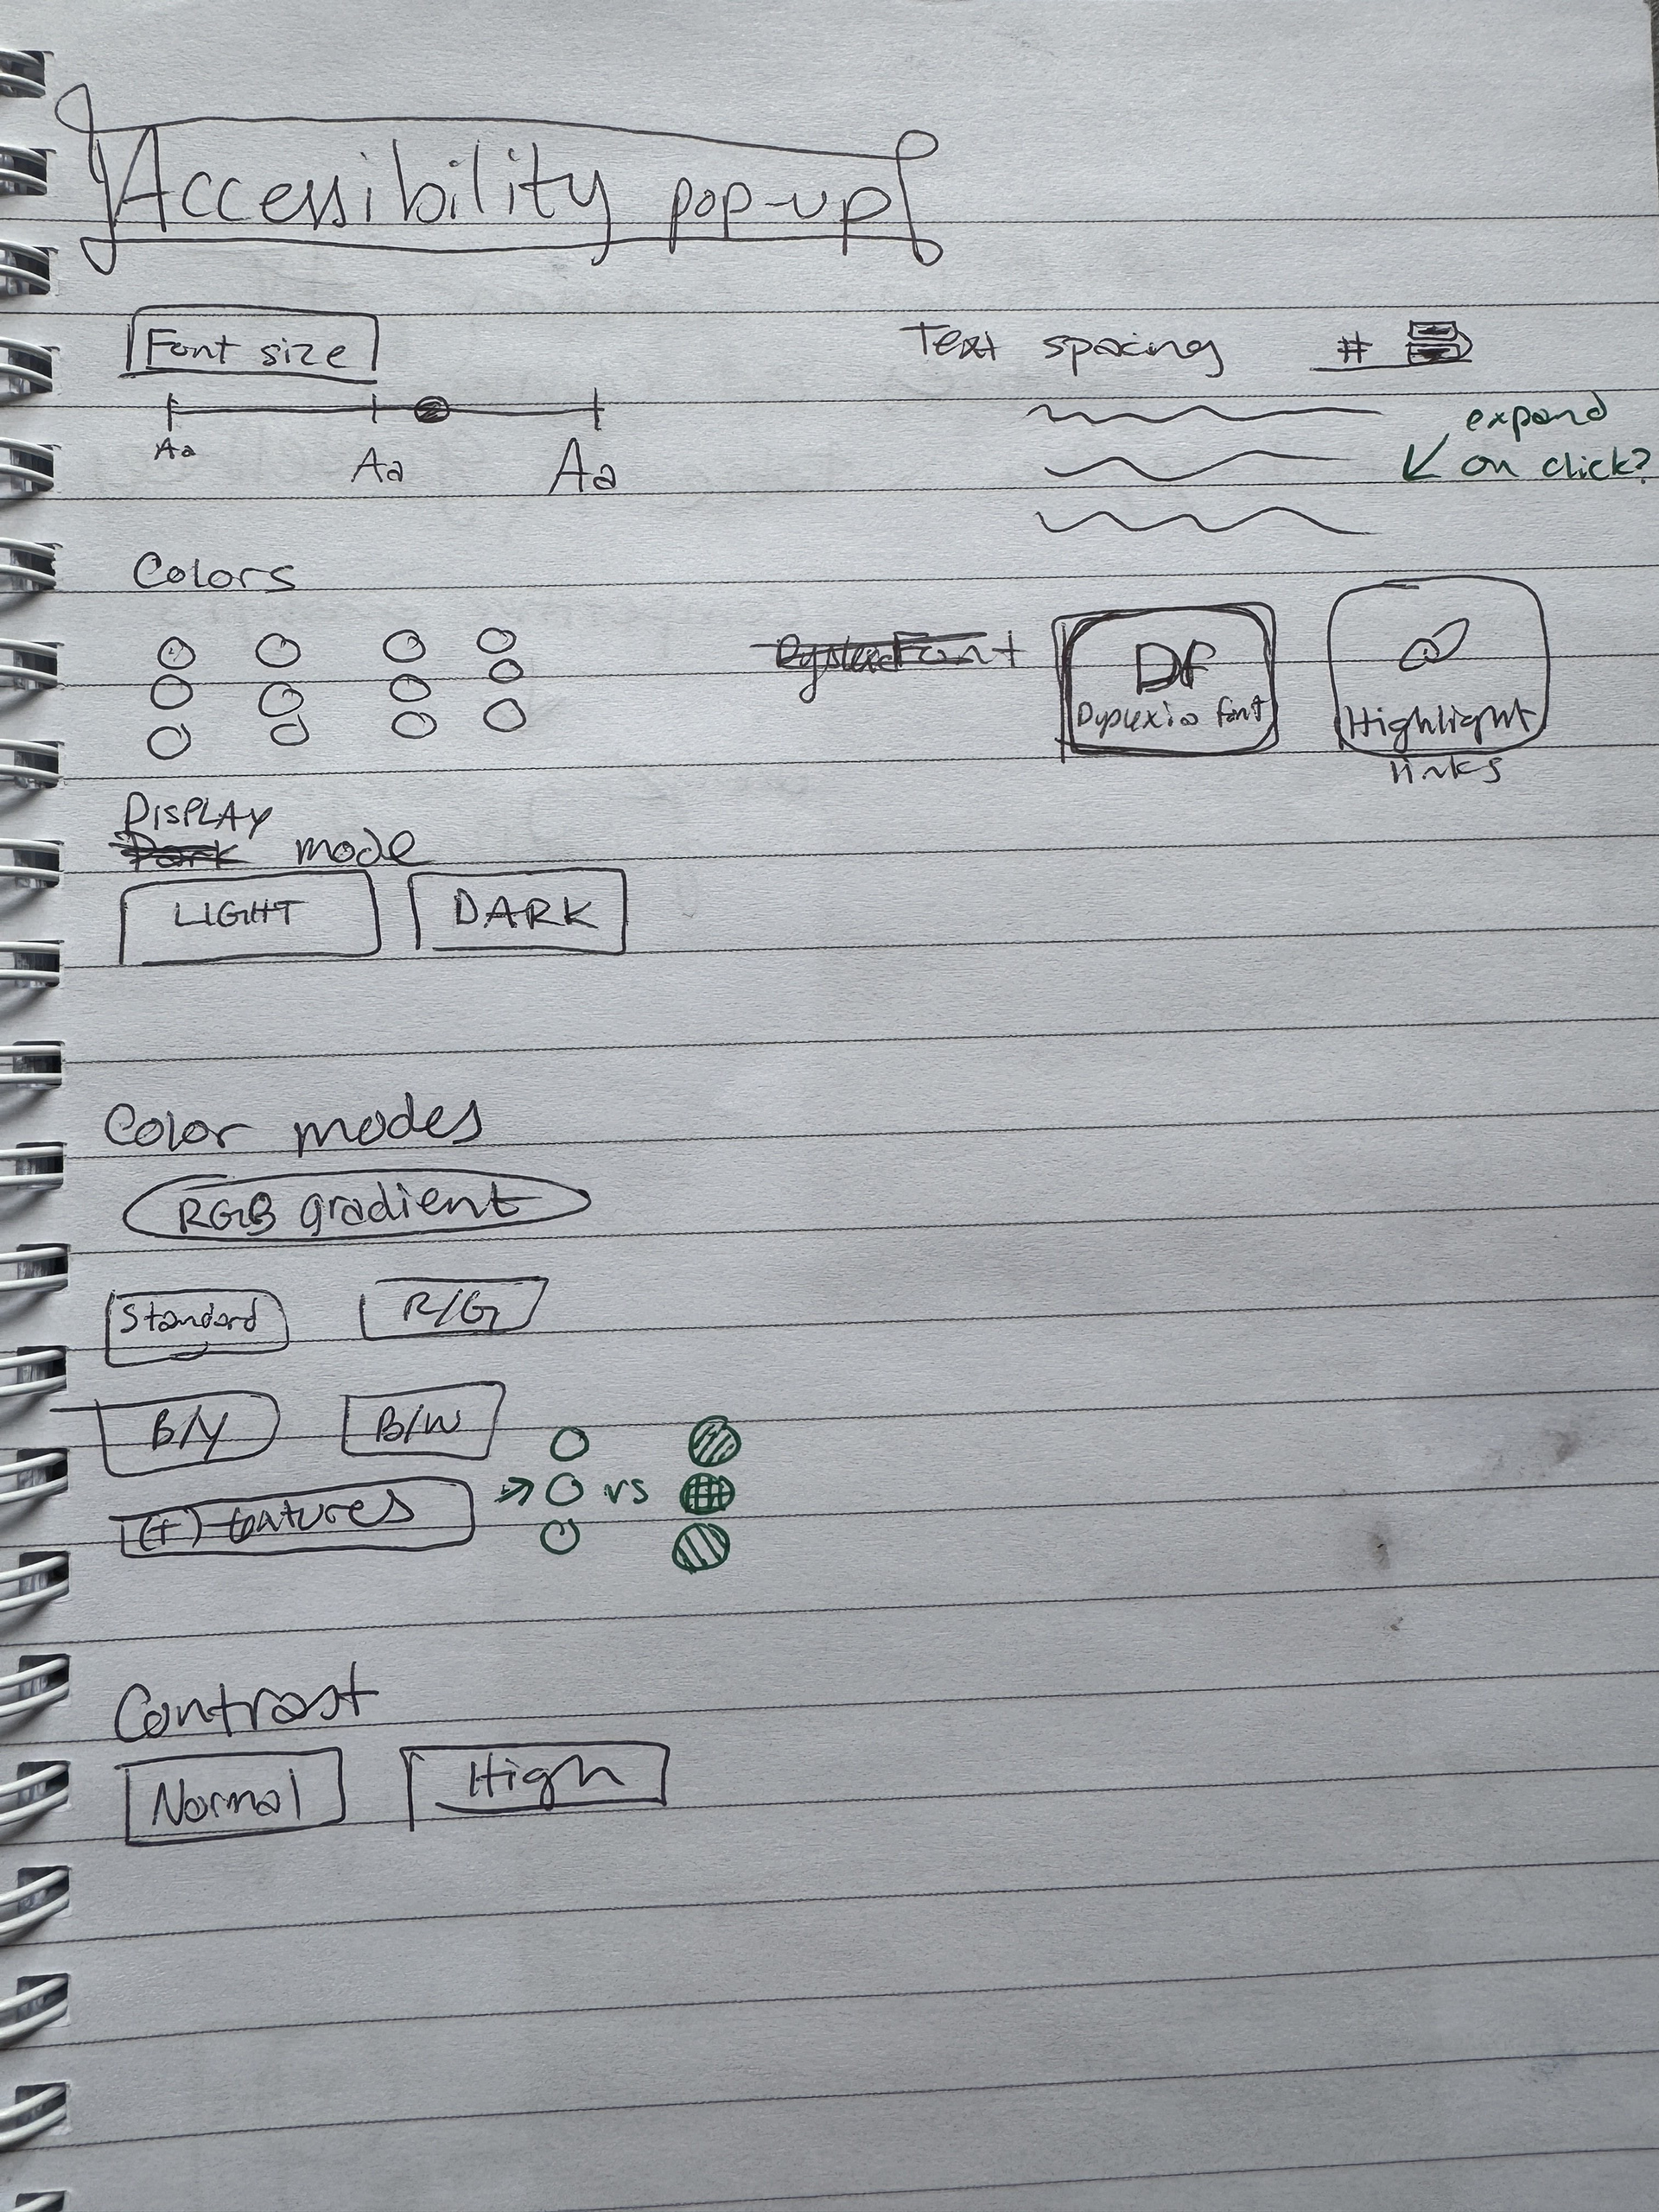 Accessibility pop-up
Font size
Aa Aa Aa
Text spacing #
expand
on click?
Colors
Font
DF
Dyplexia font
Highlight
links
DISPLAY
Dark mode
LIGHT DARK
Color modes
RGB gradient
Standard R/G
B/Y B/W
(+) features
vs
Contrast
Normal High